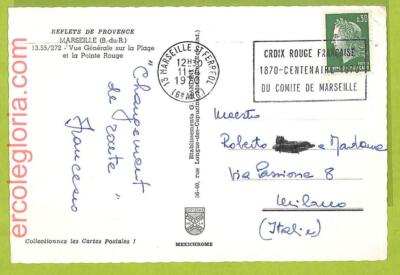 REFLETS DE PROVENCE
MARSEILLE (B.-du-R.)
13.55/272 - Vue Générale sur la Plage
et la Pointe Rouge
13 MARSEILLE ST FERREOL
12H30
1970
0,30
CROIX ROUGE FRANÇAISE
1870-CENTENAIRE-1970
DU COMITE DE MARSEILLE
"Changement
de route"
Francesco
Maestro
Roberto e Madame
Via Passione 8
Milano
(Italie)
Etablissements G.
36-40, rue Longue-des-Capucins
MEXICHROME
Collectionnez les Cartes Postales !
ercolegloria.com